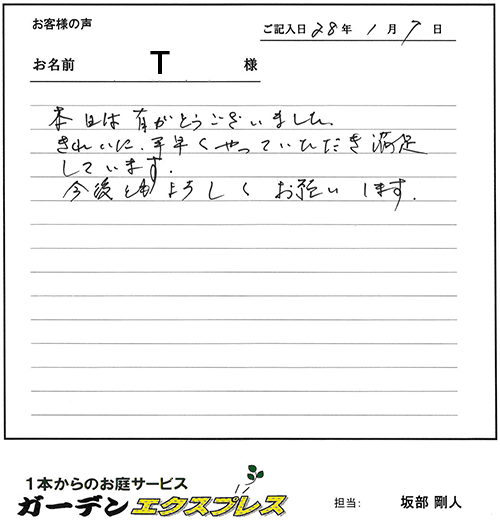 お客様の声
ご記入日 28年 1月 7日
お名前 T 様
本日は有がとうございました。
きれいに、手早くやっていただき満足
しています。
今後ともよろしくお願いします。
1本からのお庭サービス
ガーデンエクスプレス
担当: 坂部 剛人